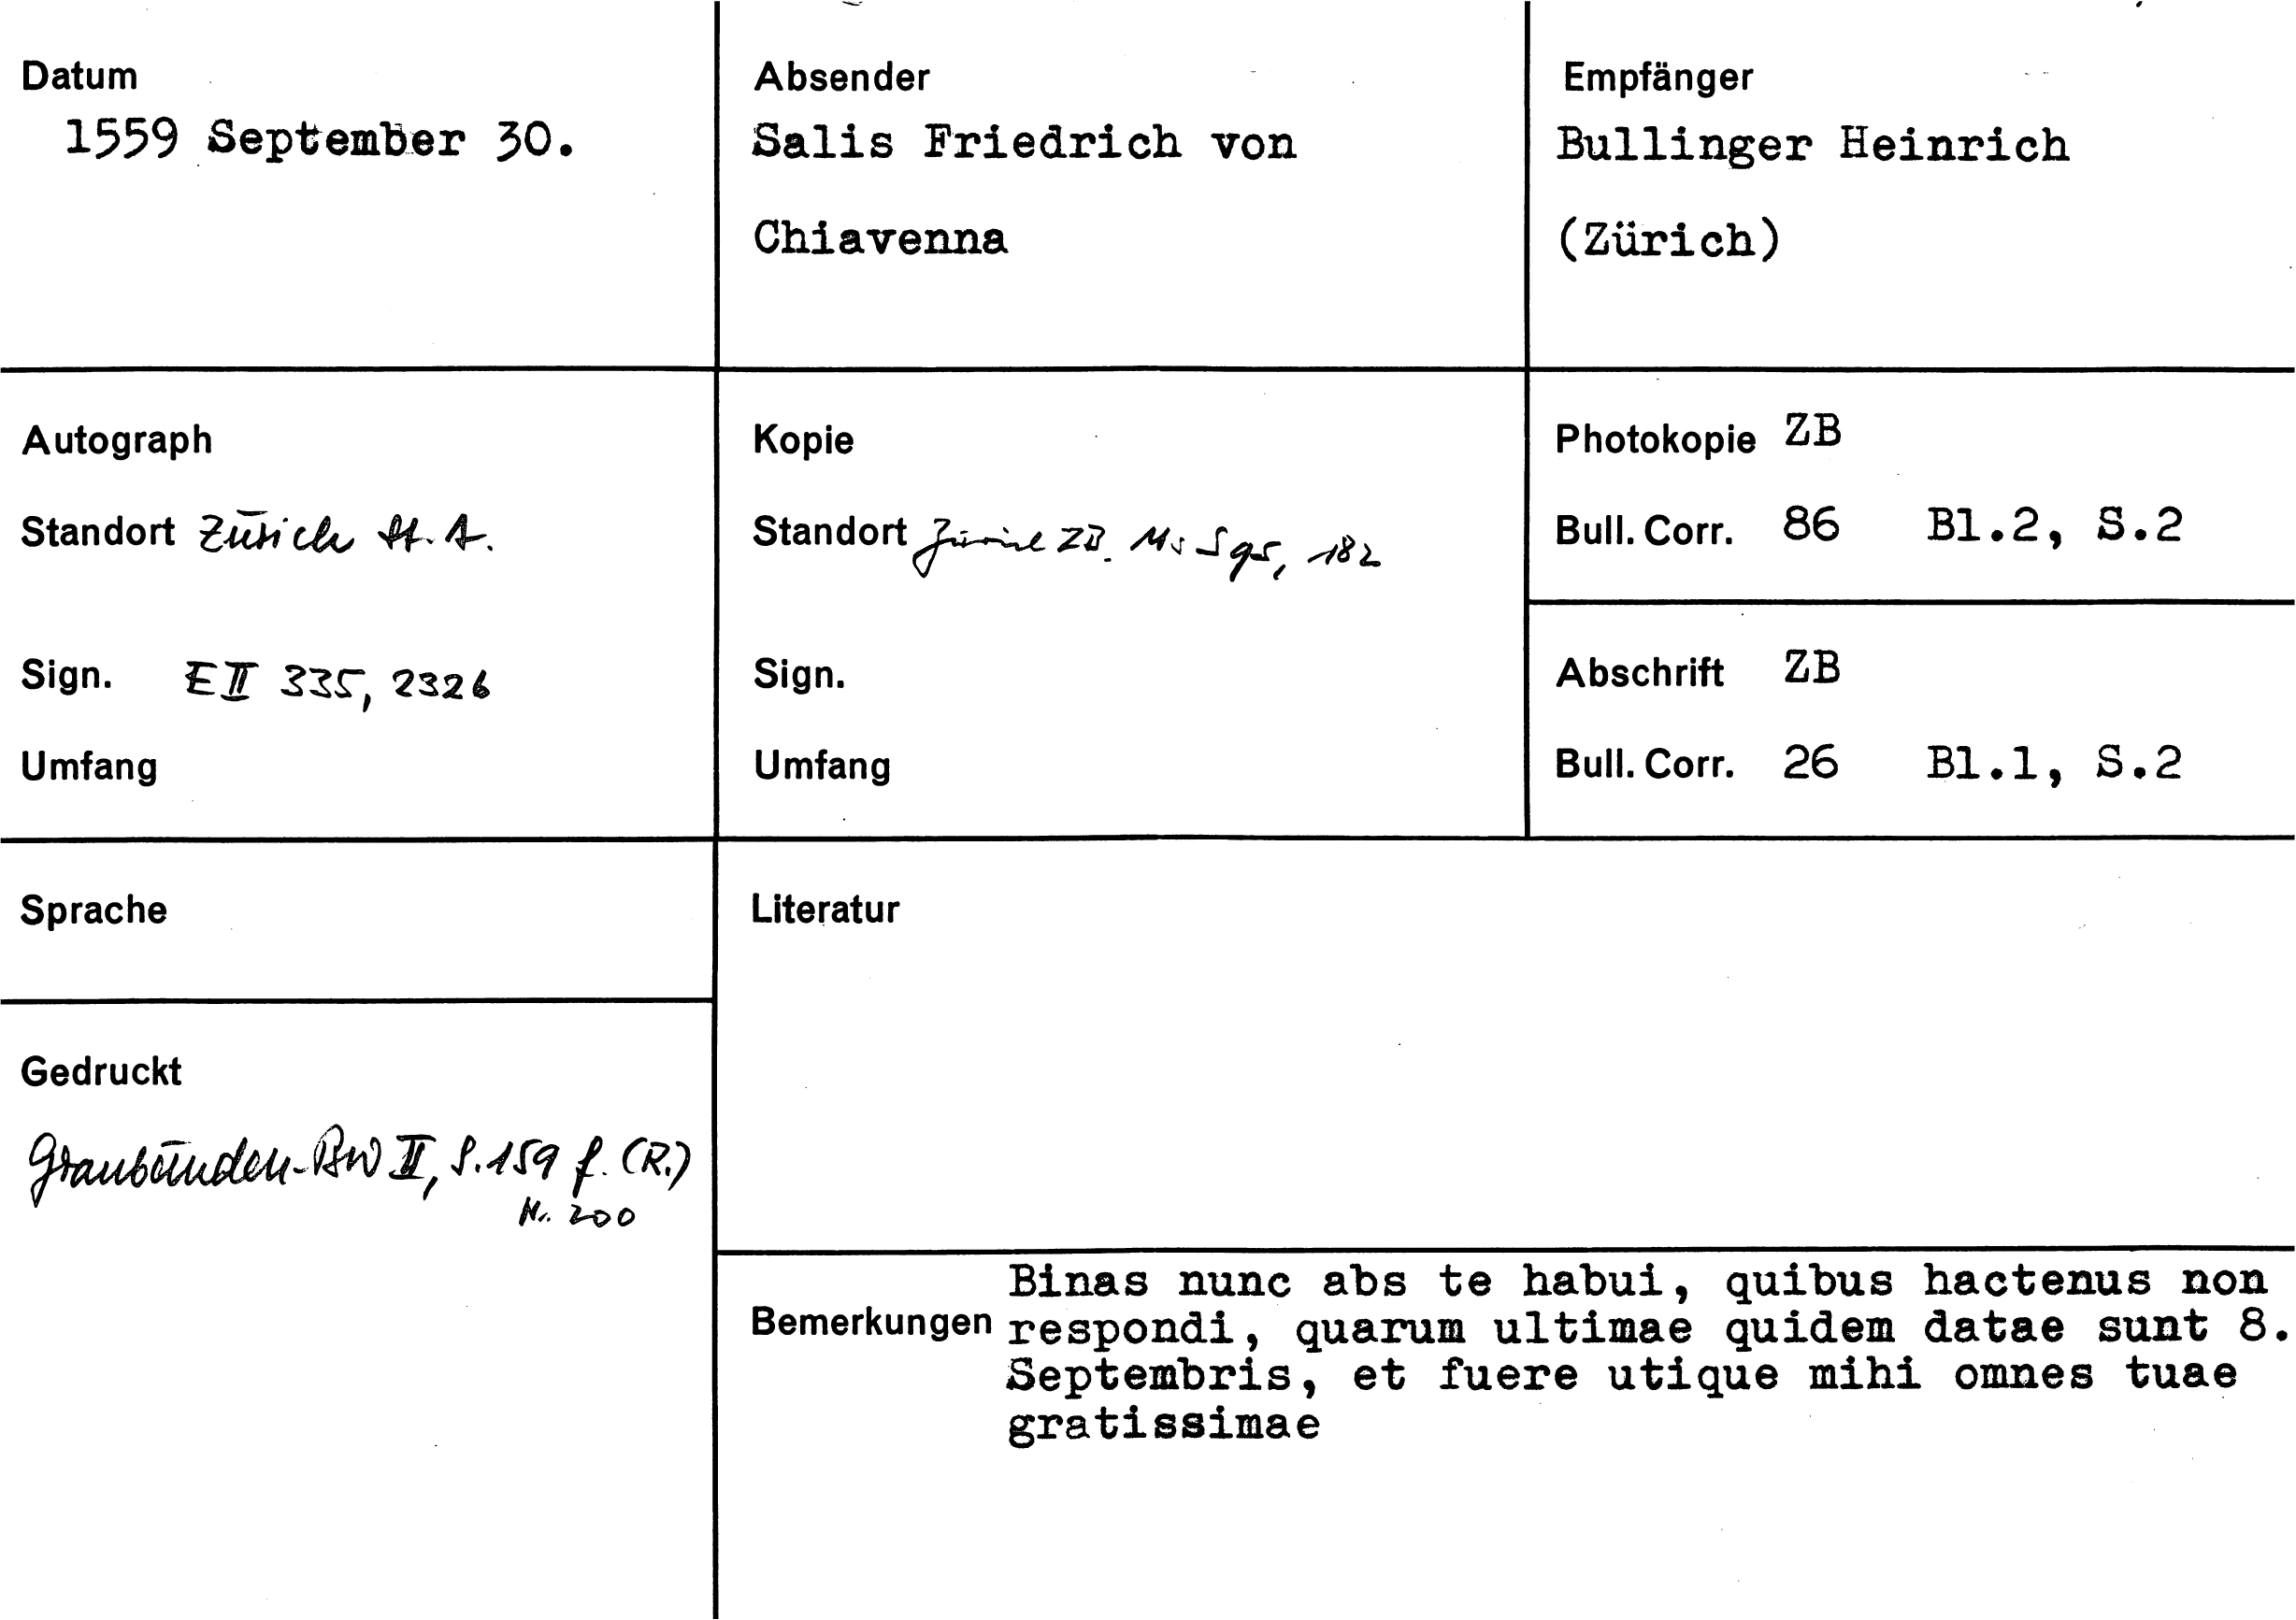 Datum
1559 September 30.
Absender
Salis Friedrich von
Chiavenna
Empfänger
Bullinger Heinrich
(Zürich)
Autograph
Standort Zürich St. A.
Sign. E II 335, 2326
Umfang
Kopie
Standort Zürich ZB. Ms S 95, 182
Sign.
Umfang
Photokopie ZB
Bull. Corr. 86 Bl.2, S.2
Abschrift ZB
Bull. Corr. 26 Bl.1, S.2
Sprache
Literatur
Gedruckt
Graubünden-BW II, S. 159 f. (R.)
Nr. 200
Bemerkungen
Binas nunc abs te habui, quibus hactenus non
respondi, quarum ultimae quidem datae sunt 8.
Septembris, et fuere utique mihi omnes tuae
gratissimae